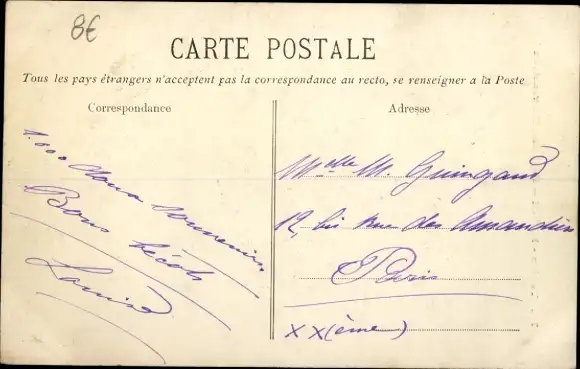 8€
CARTE POSTALE
Tous les pays étrangers n'acceptent pas la correspondance au recto, se renseigner a la Poste
Correspondance
Adresse
1.000 doux souvenirs.
Bons bécots
Louise
Melle M. Guingand
12, bis rue des Amandiers
Paris
XX (ème)